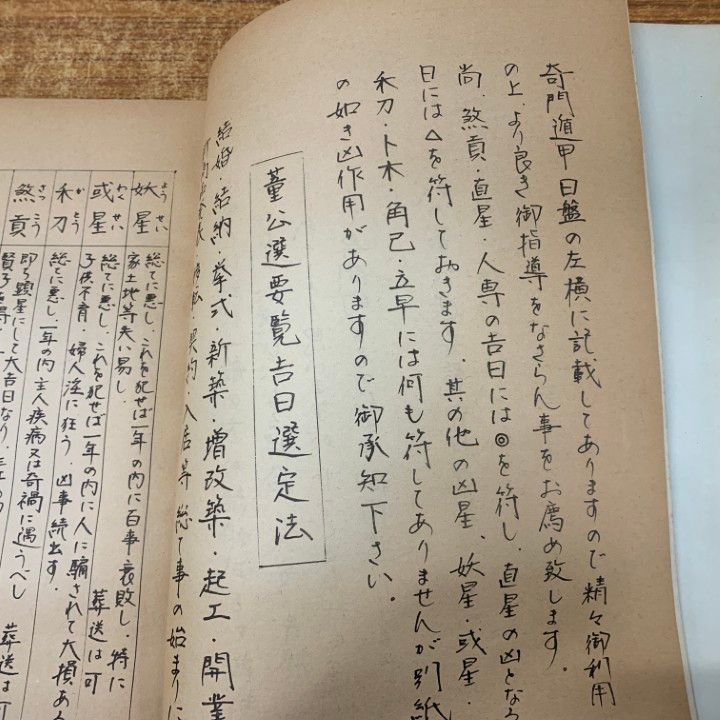 奇門遁甲日盤の左横に記載してありますので精々御利用
の上、より良き御指導をなさらん事をお薦め致します。
尚、煞貢・直星・人専の吉日には◎を符し、直星の凶となる
日には△を符しておきます。其の他の凶星、妖星・或星・
禾刀・卜木・角己・立早には何も符してありませんが別紙
の如き凶作用がありますので御承知下さい。
董公選要覧吉日選定法
結婚・結納・挙式・新築・増改築・起工・開業
契約・入居等総て事の始まりに
妖星
ようせい
総てに悪し、これを犯せば一年の内に百事衰敗し、特に
家土地等失い易し。
葬送は可
或星
わくせい
総てに悪し、これを犯せば一年の内に人に騙されて大損ある
子供不育、婦人淫に狂う、凶事続出す。
禾刀
かとう
総てに悪し、一年の内主人疾病又は奇禍に遇うべし
葬送は可
煞貢
さっこう
即ち顕星にして大吉日なり、三年の内